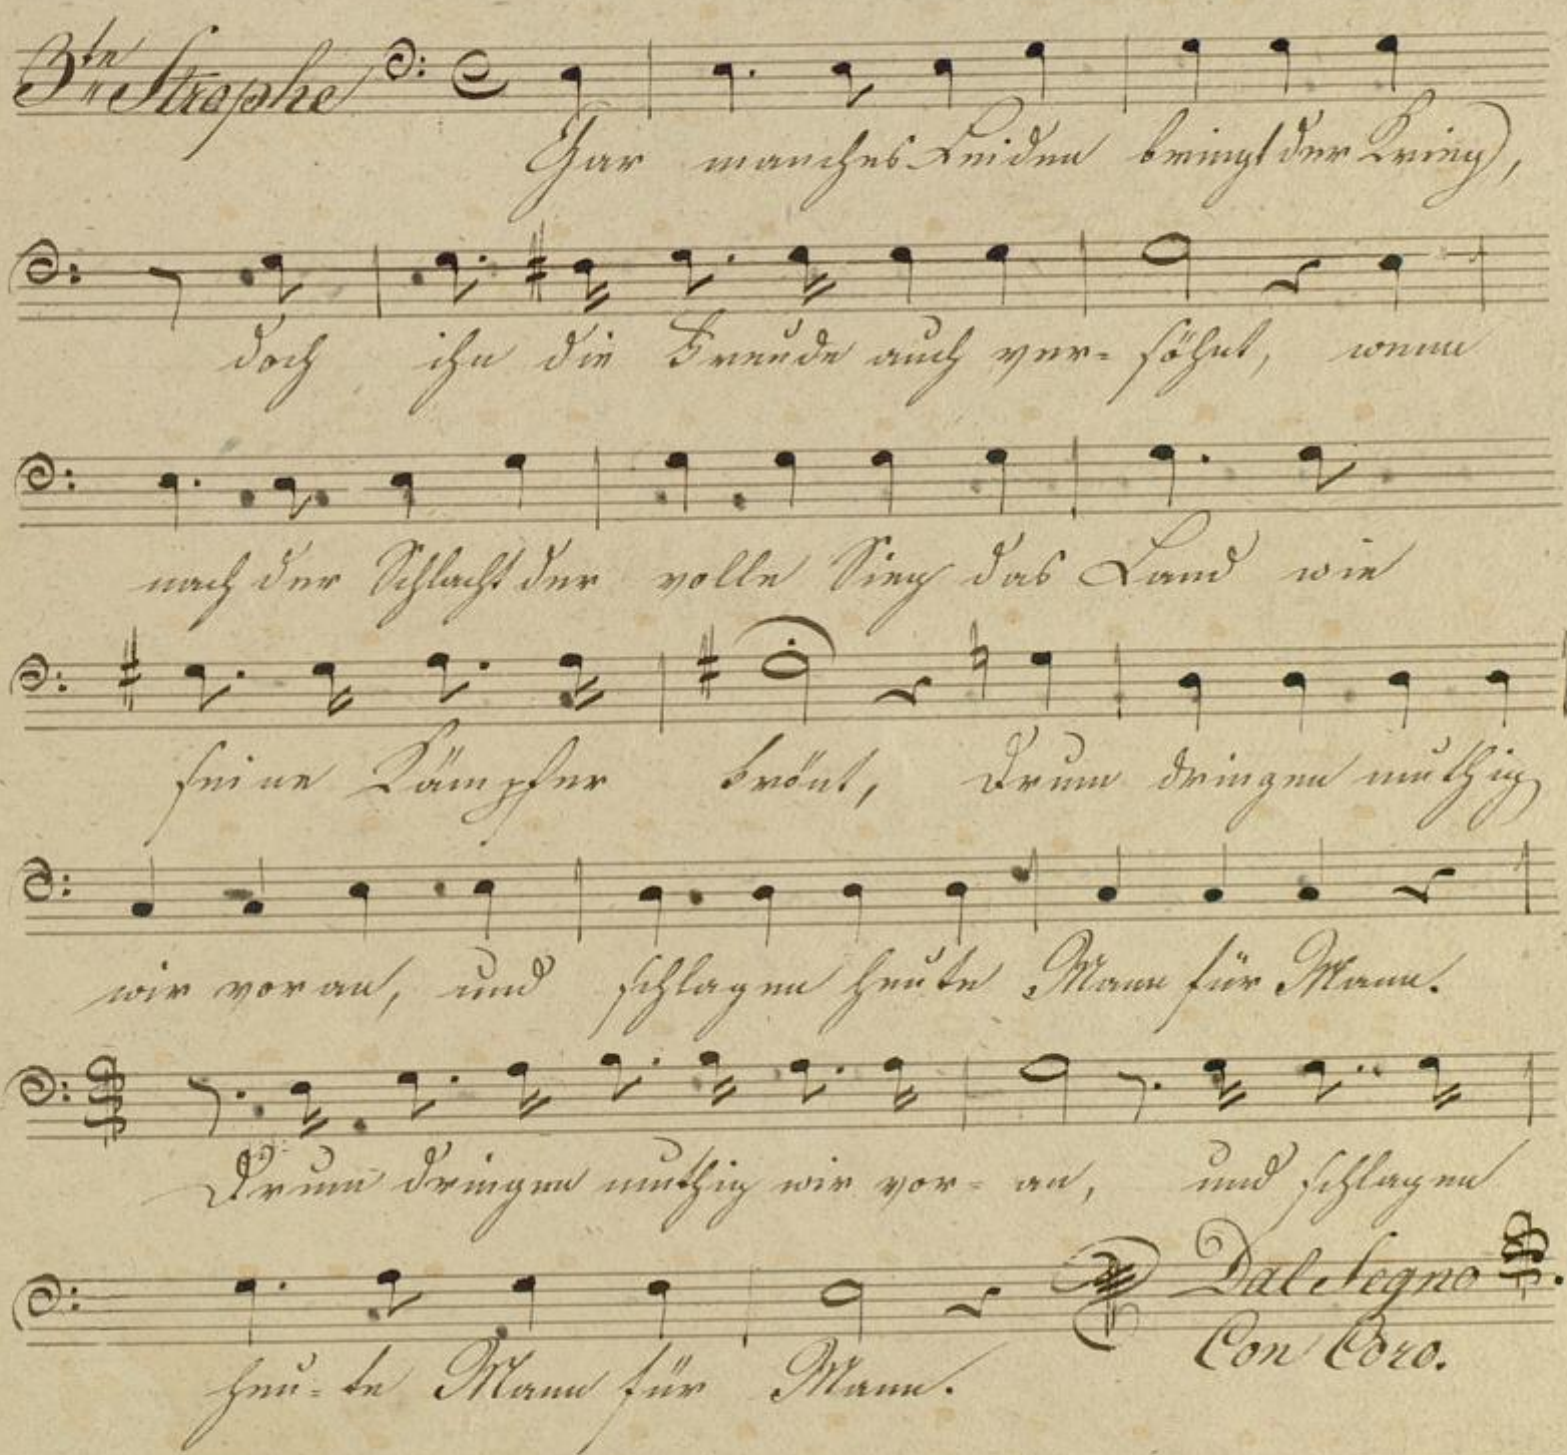 3te Strophe
Gar manches Leiden bringt der Krieg,
doch ihn die Freude auch ver- söhnt, wenn
nach der Schlacht der volle Sieg das Land wie
seine Kämpfer krönt, Drum dringen muthig
wir voran, und schlagen heute Mann für Mann.
Drum dringen muthig wir vor- an, und schlagen
Dal Segno
Con Coro.
heu- te Mann für Mann.